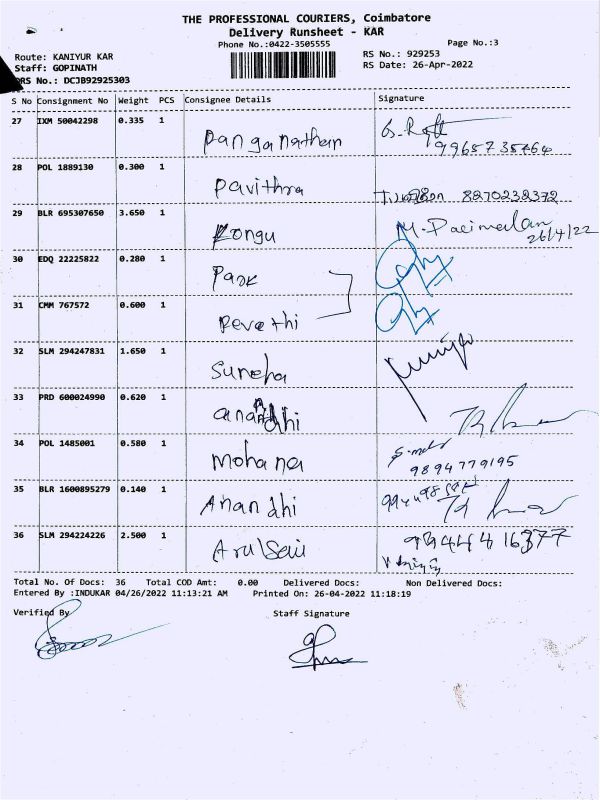 THE PROFESSIONAL COURIERS, Coimbatore
Delivery Runsheet - KAR
Phone No.:0422-3505555
Page No.:3
Route: KANIYUR KAR
RS No.: 929253
Staff: GOPINATH
RS Date: 26-Apr-2022
DRS No.: DCJB92925303
S No Consignment No Weight PCS Consignee Details Signature
27 IXM 50042298 0.335 1 Panganathan
9965735464
28 POL 1889130 0.300 1 Pavithra 8270232372
29 BLR 695307650 3.650 1 Kongu M.
26/4/22
30 EDQ 22225822 0.280 1 Park
31 CMM 767572 0.600 1 Revathi
32 SLM 294247831 1.650 1 Suneha
33 PRD 600024990 0.620 1 anandhi
34 POL 1485001 0.580 1 Mohana
9894779195
35 BLR 1600895279 0.140 1 Anandhi
36 SLM 294224226 2.500 1 Arulsai
Total No. Of Docs: 36 Total COD Amt: 0.00 Delivered Docs: Non Delivered Docs:
Entered By :INDUKAR 04/26/2022 11:13:21 AM Printed On: 26-04-2022 11:18:19
Verified By Staff Signature